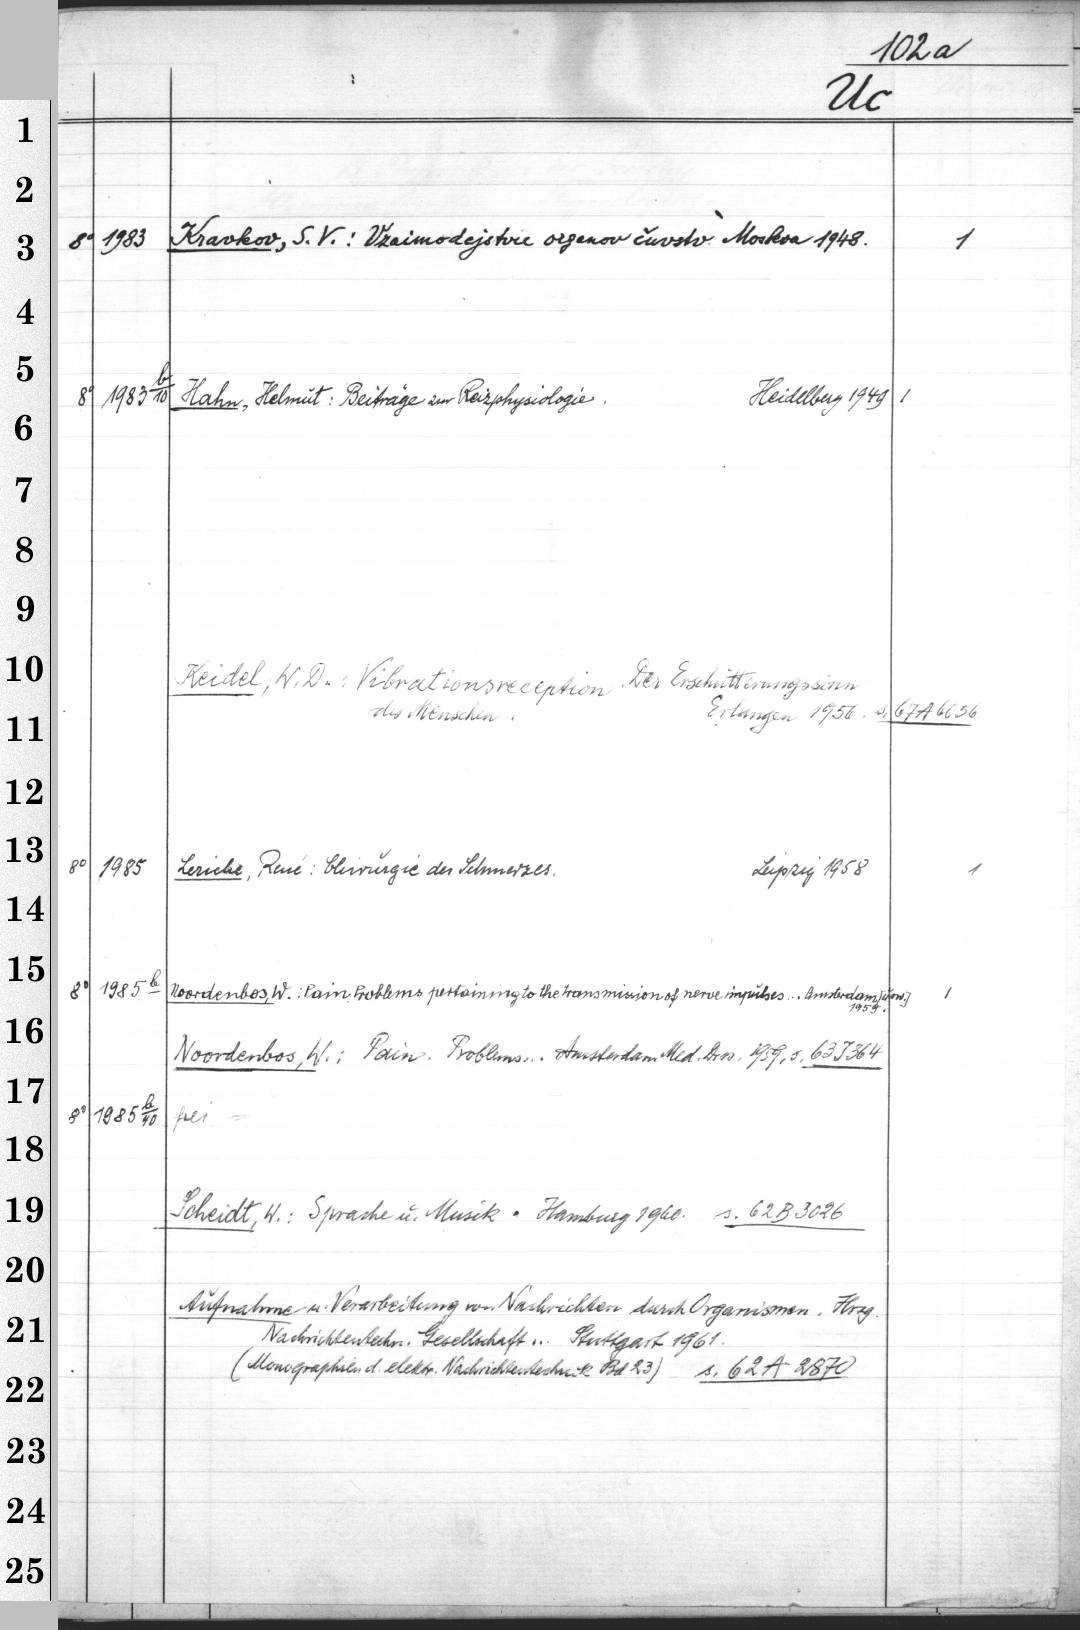 102a
Uc
1
2
3 8° 1983 Kravkov, S.V.: Vzaimodejstvie organov čuvstv. Moskva 1948. 1
4
5
8° 1983 b/10 Hahn, Helmut: Beiträge zur Reizphysiologie. Heidelberg 1949 1
6
7
8
9
10 Keidel, W.D.: Vibrationsreception. Der Erschütterungssinn
11 des Menschen. Erlangen 1956. s. 67A6656
12
13 8° 1985 Leriche, René: Chirurgie des Schmerzes. Leipzig 1958 1
14
15 8° 1985 b Noordenbos, W.: Pain. Problems pertaining to the transmission of nerve impulses... Amsterdam [usw.] 1
1959.
16 Noordenbos, W.: Pain. Problems... Amsterdam Med. 1959, s. 63J364
17 8° 1985 b/40 frei
18
19 Scheidt, W.: Sprache u. Musik. Hamburg 1960. s. 62B3026
20
Aufnahme u. Verarbeitung von Nachrichten durch Organismen. Hrsg.
21 Nachrichtentechn. Gesellschaft... Stuttgart 1961.
22 (Monographien d. elektr. Nachrichtentechnik Bd 23) s. 62A 2870
23
24
25